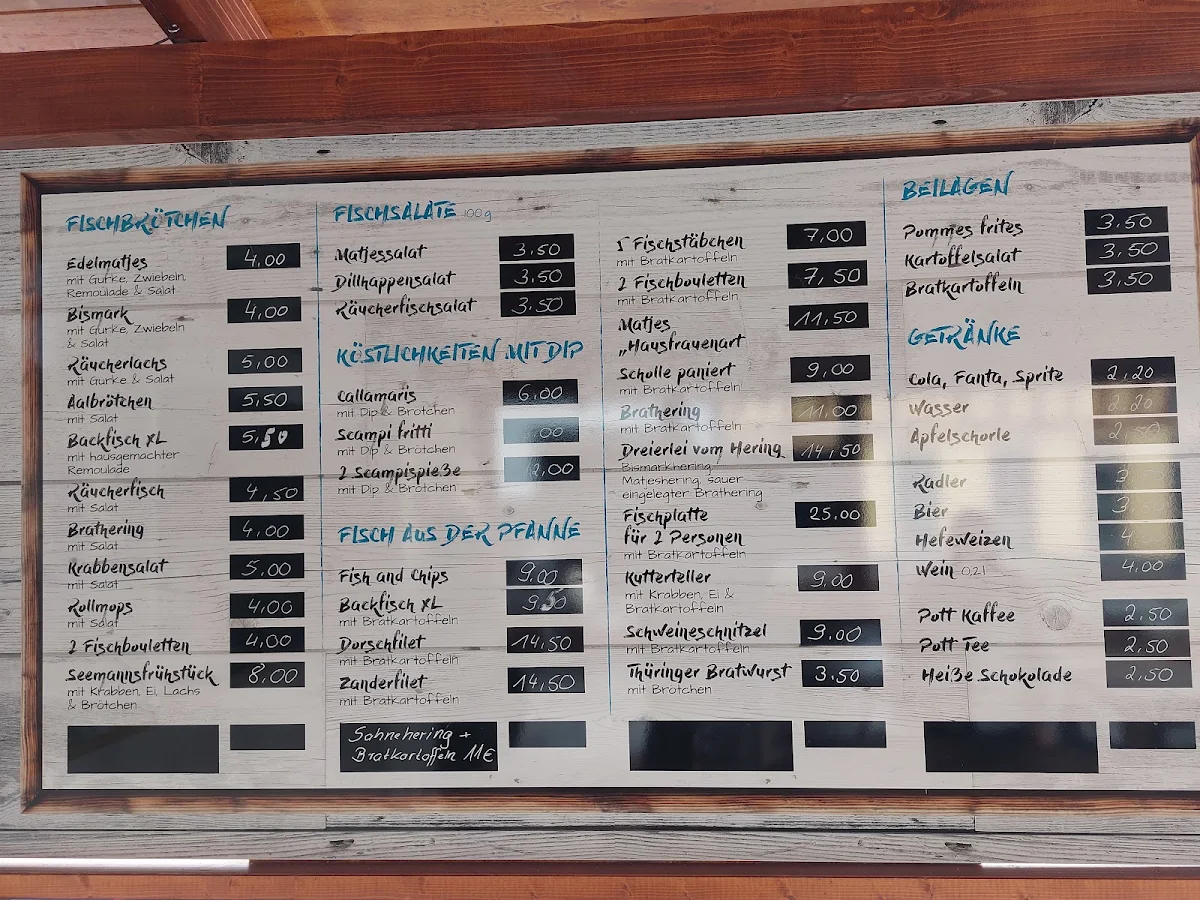 FISCHBRÖTCHEN
Edelmatjes 4,00
mit Gurke, Zwiebeln,
Remoulade & Salat
Bismark 4,00
mit Gurke, Zwiebeln
& Salat
Räucherlachs 5,00
mit Gurke & Salat
Aalbrötchen 5,50
mit Salat
Backfisch XL 5,50
mit hausgemachter
Remoulade
Räucherfisch 4,50
mit Salat
Brathering 4,00
mit Salat
Krabbensalat 5,00
mit Salat
Rollmops 4,00
mit Salat
2 Fischbouletten 4,00
Seemannsfrühstück 8,00
mit Krabben, Ei, Lachs
& Brötchen
FISCHSALATE 100g
Matjessalat 3,50
Dillhappensalat 3,50
Räucherfischsalat 3,50
KÖSTLICHKEITEN MIT DIP
Callamaris 6,00
mit Dip & Brötchen
Scampi fritti
mit Dip & Brötchen
2 Scampispieße
mit Dip & Brötchen
FISCH AUS DER PFANNE
Fish and Chips 9,00
Backfisch XL 9,50
mit Bratkartoffeln
Dorschfilet 14,50
mit Bratkartoffeln
Zanderfilet 14,50
mit Bratkartoffeln
Sahnehering +
Bratkartoffeln 11€
5 Fischstäbchen 7,00
mit Bratkartoffeln
2 Fischbouletten 7,50
mit Bratkartoffeln
Matjes 11,50
„Hausfrauenart
Scholle paniert 9,00
mit Bratkartoffeln
Brathering 11,00
mit Bratkartoffeln
Dreierlei vom Hering 14,50
Bismarkhering,
Mateshering, sauer
eingelegter Brathering
Fischplatte 25.00
für 2 Personen
mit Bratkartoffeln
Kutterteller 9,00
mit Krabben, Ei &
Bratkartoffeln
Schweineschnitzel 9.00
mit Bratkartoffeln
Thüringer Bratwurst 3.50
mit Brötchen
BEILAGEN
Pommes frites 3,50
Kartoffelsalat 3,50
Bratkartoffeln 3,50
GETRÄNKE
Cola, Fanta, Sprite 2,20
Wasser 2,20
Apfelschorle 2,50
Radler
Bier
Hefeweizen
Wein 0,2l 4,00
Pott Kaffee 2,50
Pott Tee 2,50
Heiße Schokolade 2,50